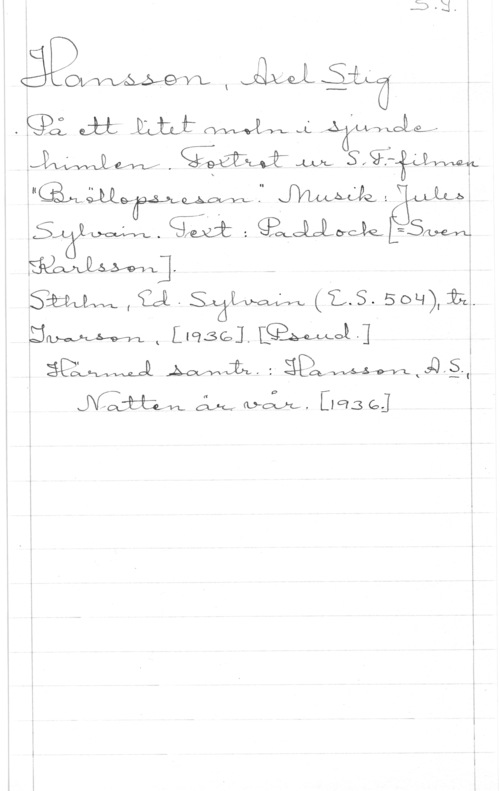 S.J.
Hansson, Axel Stig
På ett litet moln i sjunde
himlen. Foxtrot ur S.F.-filmen
"Bröllopsresan." Musik: Jules
Sylvain. Text: Paddock [=Sven
Karlsson].
Sthlm, Ed. Sylvain (E.S. 504), tr.
Ivarson, [1936]. [Pseud.]
Härmed samtr.: Hansson, A.S.,
Natten är vår. [1936.]